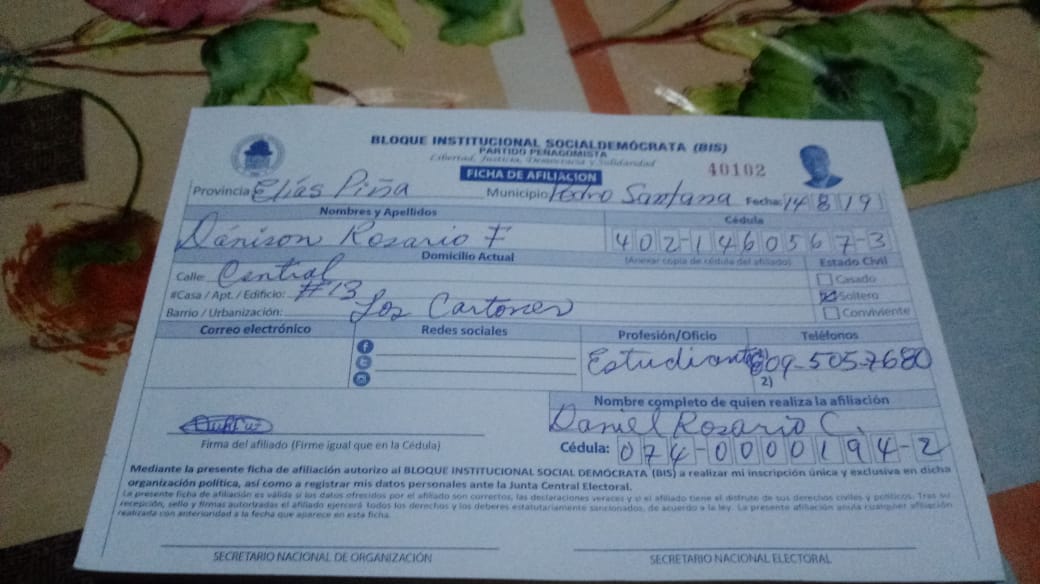 BLOQUE INSTITUCIONAL SOCIALDEMÓCRATA (BIS)
PARTIDO PEÑAGOMISTA
Libertad, Justicia, Democracia y Solidaridad
FICHA DE AFILIACION
40102
Provincia: Elías Piña Municipio Pedro Santana Fecha: 14 8 19
Nombres y Apellidos Cédula
Dánison Rosario F 402-1460567-3
Domicilio Actual (Anexar copia de cédula del afiliado) Estado Civil
Calle: Central Casado
#Casa / Apt. / Edificio: #13 Soltero
Barrio / Urbanización: Los Cartones Conviviente
Correo electrónico Redes sociales Profesión/Oficio Teléfonos
Estudiante 809-505-7680
2)
Nombre completo de quien realiza la afiliación
Daniel Rosario C.
Firma del afiliado (Firme igual que en la Cédula) Cédula: 074-0000194-2
Mediante la presente ficha de afiliación autorizo al BLOQUE INSTITUCIONAL SOCIAL DEMÓCRATA (BIS) a realizar mi inscripción única y exclusiva en dicha
organización política, así como a registrar mis datos personales ante la Junta Central Electoral.
La presente ficha de afiliación es válida si los datos ofrecidos por el afiliado son correctos, las declaraciones veraces y si el afiliado tiene el disfrute de sus derechos civiles y políticos. Tras su
recepción, sello y firmas autorizadas el afiliado ejercerá todos los derechos y los deberes estatutariamente sancionados, de acuerdo a la ley. La presente afiliación anula cualquier afiliación
realizada con anterioridad a la fecha que aparece en esta ficha.
SECRETARIO NACIONAL DE ORGANIZACIÓN SECRETARIO NACIONAL ELECTORAL